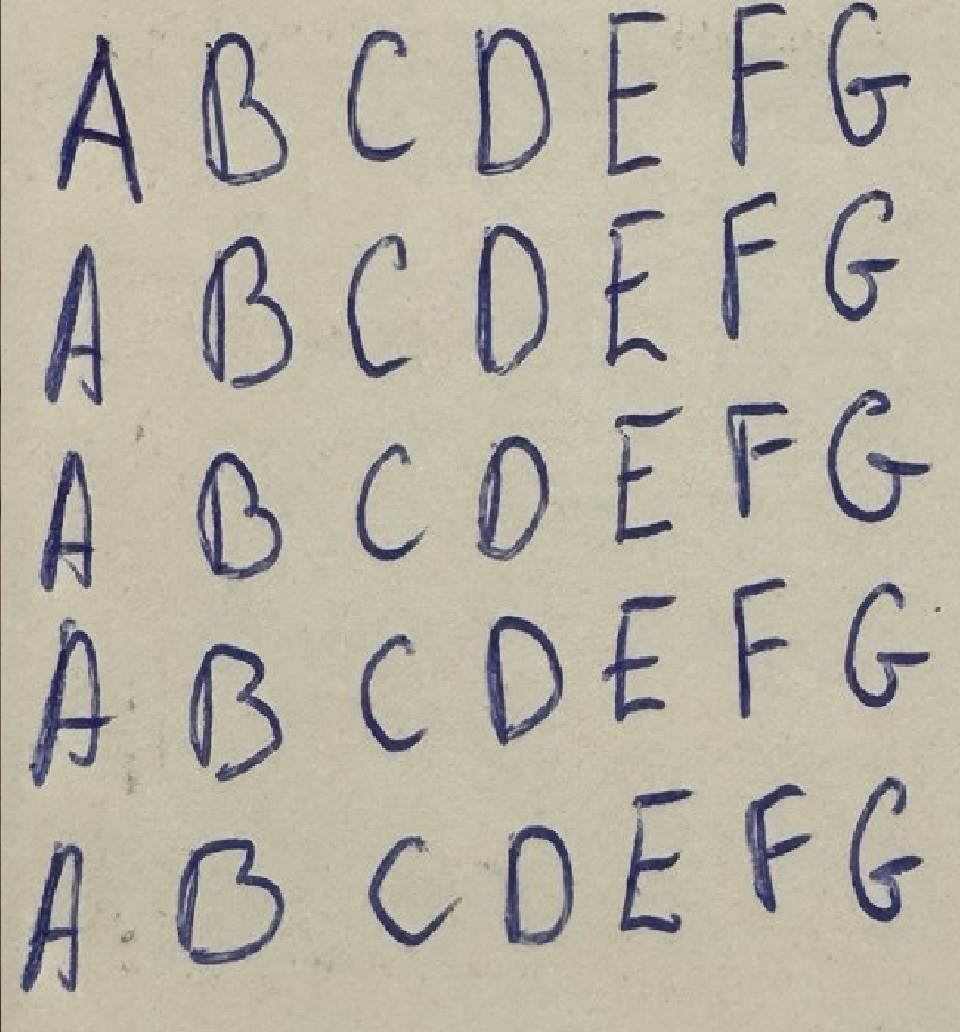 A B C D E F G
A B C D E F G
A B C D E F G
A B C D E F G
A B C D E F G